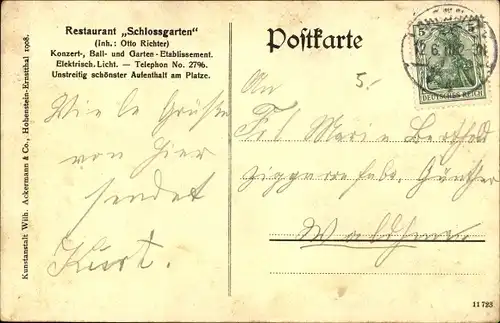 Restaurant „Schlossgarten“
(Inh.: Otto Richter)
Konzert-, Ball- und Garten-Etablissement.
Elektrisch. Licht. — Telephon No. 2796.
Unstreitig schönster Aufenthalt am Platze.
Kunstanstalt Wilh. Ackermann & Co., Hohenstein-Ernstthal 1908.
Viele Grüße
von hier
sendet
Kurt.
Postkarte
5
5
DEUTSCHES REICH
5.-
An
Frl Marie
Günther
11723